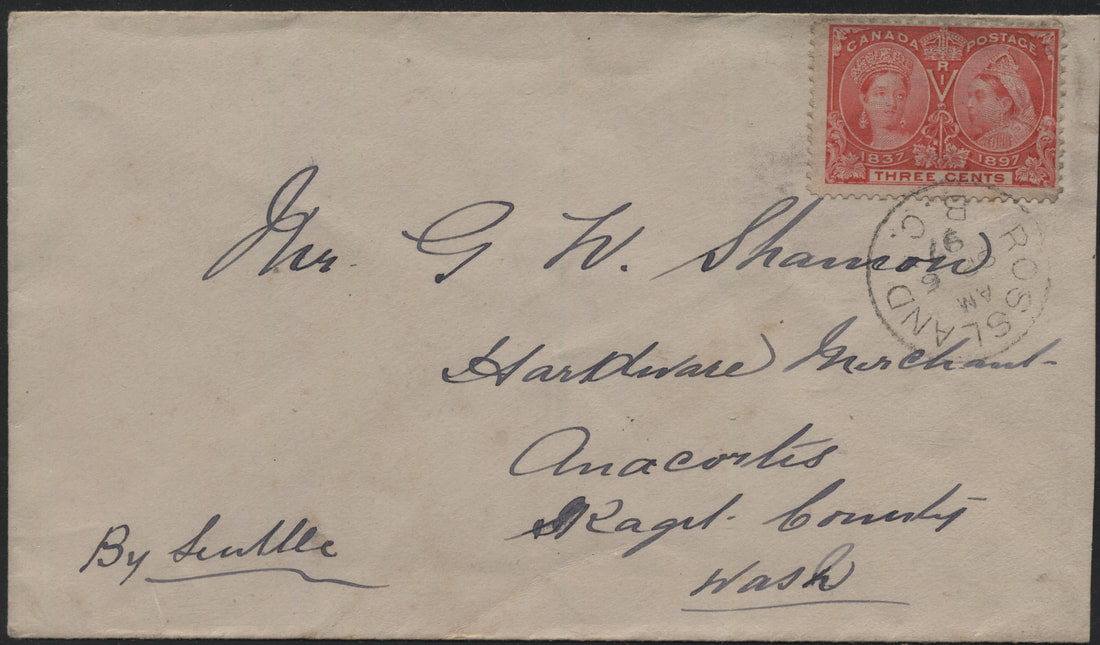 CANADA POSTAGE
V R I
1837 1897
THREE CENTS
ROSSLAND
AM
6
97
B.C.
Mr. G W. Shannon
Hardware Merchant
Anacortis
Skagit County
Wash
By Seattle